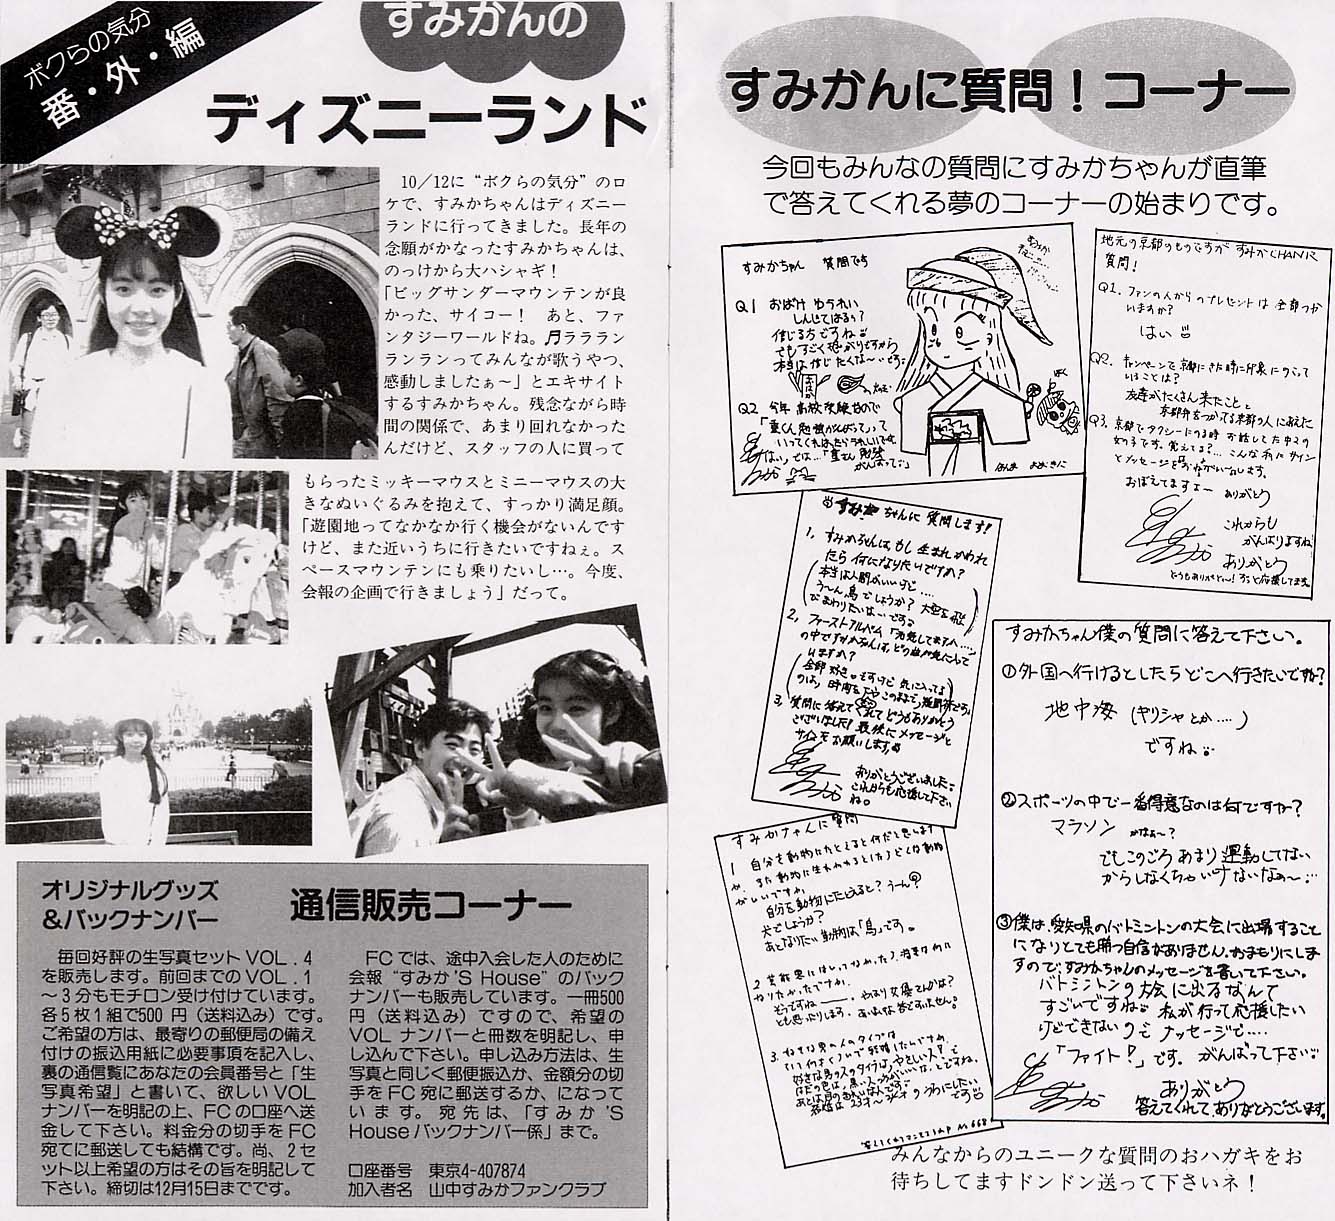 ボクらの気分
番・外・編
すみかんの
ディズニーランド
10/12に“ボクらの気分”のロ
ケで、すみかちゃんはディズニー
ランドに行ってきました。長年の
念願がかなったすみかちゃんは、
のっけから大ハシャギ！
「ビッグサンダーマウンテンが良
かった、サイコー！　あと、ファ
ンタジーワールドね。♬ララララン
ランランってみんなが歌うやつ、
感動しましたぁ～」とエキサイト
するすみかちゃん。残念ながら時
間の関係で、あまり回れなかった
んだけど、スタッフの人に買って
もらったミッキーマウスとミニーマウスの大
きなぬいぐるみを抱えて、すっかり満足顔。
「遊園地ってなかなか行く機会がないんです
けど、また近いうちに行きたいですねぇ。ス
ペースマウンテンにも乗りたいし…。今度、
会報の企画で行きましょう」だって。
オリジナルグッズ
&バックナンバー
通信販売コーナー
毎回好評の生写真セットVOL.4
を販売します。前回までのVOL.1
～3分もモチロン受け付けています。
各5枚1組で500円（送料込み）です。
ご希望の方は、最寄りの郵便局の備え
付けの振込用紙に必要事項を記入し、
裏の通信覧にあなたの会員番号と「生
写真希望」と書いて、欲しいVOL
ナンバーを明記の上、FCの口座へ送
金して下さい。料金分の切手をFC
宛てに郵送しても結構です。尚、2セ
ット以上希望の方はその旨を明記して
下さい。締切は12月15日までです。
FCでは、途中入会した人のために
会報“すみか'S House”のバック
ナンバーも販売しています。一冊500
円（送料込み）ですので、希望の
VOLナンバーと冊数を明記し、申
し込んで下さい。申し込み方法は、生
写真と同じく郵便振込か、金額分の切
手をFC宛に郵送するか、になって
います。宛先は、「すみか'S
Houseバックナンバー係」まで。
口座番号　東京4-407874
加入者名　山中すみかファンクラブ
すみかんに質問！コーナー
今回もみんなの質問にすみかちゃんが直筆
で答えてくれる夢のコーナーの始まりです。
すみかちゃん　質問です
Q1 おばけ ゆうれい
しんじてはる？
信じる方ですね
でもすごく恐がりですから
本当は信じたくな～いです。
Q2 今年 高校受験なので
地元の京都のものですが すみかCHANに
質問！
Q1. ファンの人からのプレゼントは全部つか
いますか？
はい
Q2. キャンペーンで京都にきた時に印象にのこって
いることは？
友達がたくさん来たこと、
京都弁をつかってる京都の人にあえた
Q3. 京都でタクシーにのる時 お話してた中2の
女の子です。覚えてる？… こんな私にサイン
とメッセージをおねがいします。
おぼえてますよー ありがとう
これからも
がんばりますね
ありがとう
すみかちゃんに質問します！
1. すみかちゃんは、もし生まれかわれ
たら何になりたいですか？
本当は人間がいいけど....
う～ん鳥でしょうか？ 大空を飛
びまわりたいな～いです。
2. ファーストアルバム
の中ですみかちゃんは、どの曲が気に入って
いますか？
3. 質問に答えてくれてどうもありがとう
ございました！最後にメッセージと
サインをお願いします。
ありがとうございました
これからも応援して下さい
ね。
すみかちゃんに質問
1 自分を動物にたとえると何だと思います
か、また動物に生れかわるとしたらどんな動物
がいいですか。
自分を動物にたとえると？うーん？
犬でしょうか？
あとなりたい動物は「鳥」です。
すみかちゃん僕の質問に答えて下さい。
①外国へ行けるとしたらどこへ行きたいですか？
地中海（ギリシャとか....）
ですね
②スポーツの中で一番得意なのは何ですか？
マラソン かなぁ～？
でもこのごろあまり運動してない
からしなくちゃいけないなぁ～…
③僕は、愛知県のバトミントンの大会に出場すること
になりとても勝つ自信がありません。おまもりにしま
すので、すみかちゃんのメッセージを書いて下さい。
バトミントンの大会に出るなんて
すごいですね 私が行って応援したい
けどできないのでメッセージで....
「ファイト！」です。がんばって下さい
ありがとう
答えてくれてありがとうございます。
みんなからのユニークな質問のおハガキをお
待ちしてますドンドン送って下さいネ！